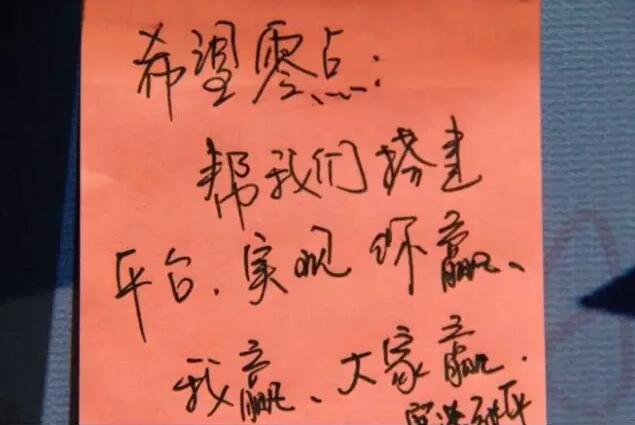 希望零点:
帮我们搭建
平台.实现你赢、
我赢、大家赢.